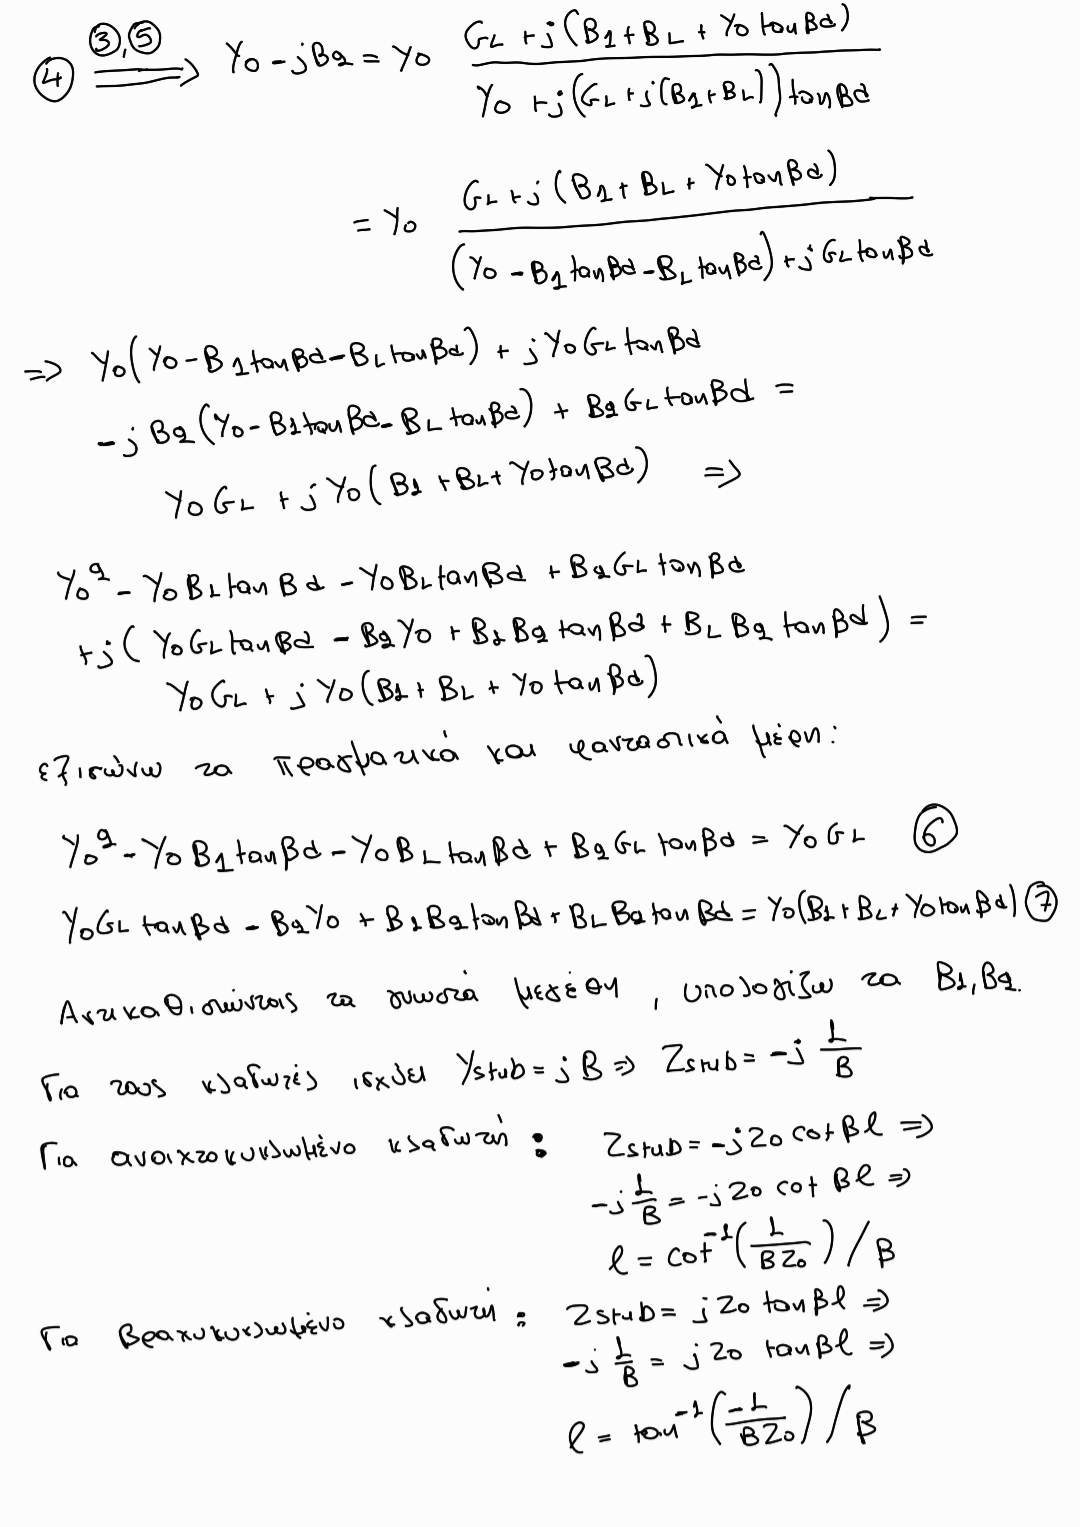 ④ ③,⑤ ⟹ Y₀ - jB₂ = Y₀ (G_L + j(B₁ + B_L + Y₀ tanβd)) / (Y₀ + j(G_L + j(B₁ + B_L)) tanβd)
= Y₀ (G_L + j(B₁ + B_L + Y₀ tanβd)) / ((Y₀ - B₁ tanβd - B_L tanβd) + j G_L tanβd)
=> Y₀(Y₀ - B₁ tanβd - B_L tanβd) + j Y₀ G_L tanβd
- j B₂ (Y₀ - B₁ tanβd - B_L tanβd) + B₂ G_L tanβd =
Y₀ G_L + j Y₀ (B₁ + B_L + Y₀ tanβd) =>
Y₀² - Y₀ B₁ tanβd - Y₀ B_L tanβd + B₂ G_L tanβd
+ j( Y₀ G_L tanβd - B₂ Y₀ + B₁ B₂ tanβd + B_L B₂ tanβd ) =
Y₀ G_L + j Y₀ (B₁ + B_L + Y₀ tanβd)
εξισώνω τα πραγματικά και φανταστικά μέρη:
Y₀² - Y₀ B₁ tanβd - Y₀ B_L tanβd + B₂ G_L tanβd = Y₀ G_L ⑥
Y₀ G_L tanβd - B₂ Y₀ + B₁ B₂ tanβd + B_L B₂ tanβd = Y₀(B₁ + B_L + Y₀ tanβd) ⑦
Αντικαθιστώντας τα γνωστά μεγέθη, υπολογίζω τα B₁, B₂.
Για τους κλαδωτές ισχύει Ystub = jB => Zstub = -j 1/B
Για ανοιχτοκυκλωμένο κλαδωτή : Zstub = -jZ₀ cotβl =>
-j 1/B = -jZ₀ cotβl =>
l = cot⁻¹(1/(BZ₀)) / β
Για βραχυκυκλωμένο κλαδωτή : Zstub = jZ₀ tanβl =>
-j 1/B = jZ₀ tanβl =>
l = tan⁻¹(-1/(BZ₀)) / β